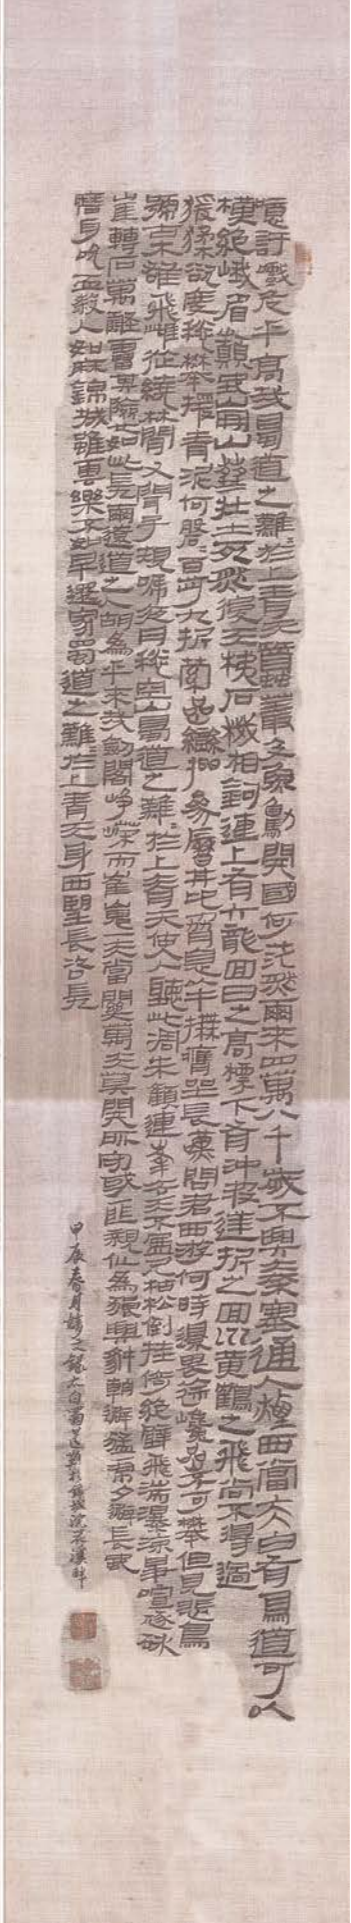 噫吁嚱危乎高哉蜀道之難難於上青天蠶叢及魚鳧開國何茫然爾來四萬八千歲不與秦塞通人煙西當太白有鳥道可以
橫絕峨眉巔地崩山摧壯士死然後天梯石棧相鉤連上有六龍回日之高標下有沖波逆折之回川黃鶴之飛尚不得過
猨猱欲度愁攀援青泥何盤盤百步九折縈巖巒捫參歷井仰脅息以手撫膺坐長歎問君西遊何時還畏途巉巖不可攀但見悲鳥
號古木雄飛雌從繞林間又聞子規啼夜月愁空山蜀道之難難於上青天使人聽此凋朱顏連峯去天不盈尺枯松倒挂倚絕壁飛湍瀑流爭喧豗砯
崖轉石萬壑雷其險也如此嗟爾遠道之人胡為乎來哉劍閣崢嶸而崔嵬一夫當關萬夫莫開所守或匪親化為狼與豺朝避猛虎夕避長蛇
磨牙吮血殺人如麻錦城雖雲樂不如早還家蜀道之難難於上青天身西望長咨嗟
甲辰春月 太白蜀道難於錦城浣花溪畔